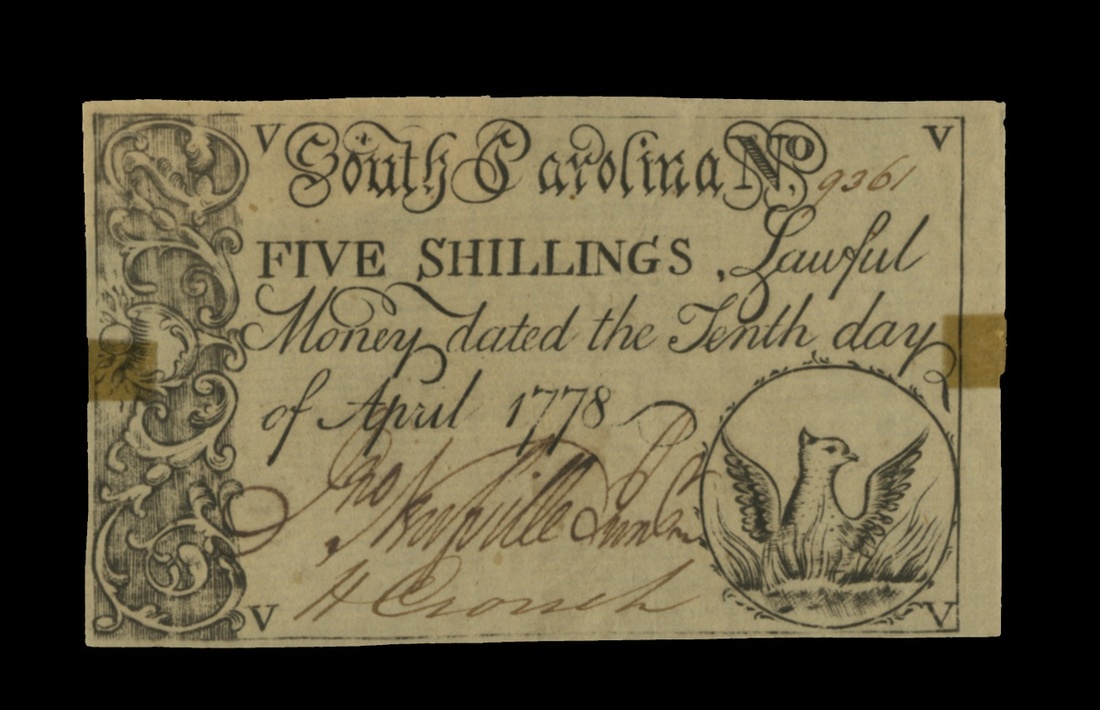 V South Carolina No. 9361 V
FIVE SHILLINGS, Lawful
Money dated the Tenth day
of April 1778
Jno
V H Crouch V